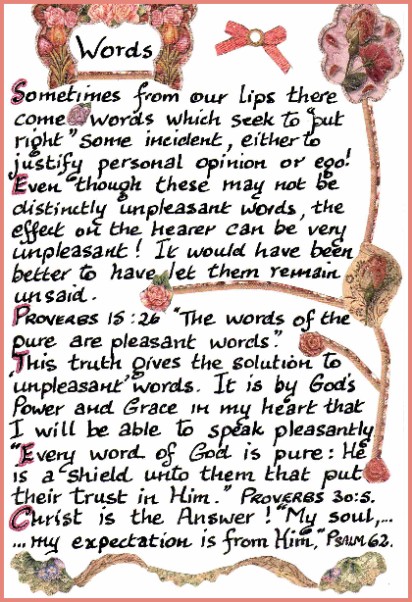 Words
Sometimes from our lips there
come words which seek to "put
right" some incident, either to
justify personal opinion or ego!
Even though these may not be
distinctly unpleasant words, the
effect on the hearer can be very
unpleasant! It would have been
better to have let them remain
unsaid.
PROVERBS 15:26 "The words of the
pure are pleasant words".
This truth gives the solution to
'unpleasant' words. It is by God's
Power and Grace in my heart that
I will be able to speak pleasantly
"Every word of God is pure: He
is a shield unto them that put
their trust in Him." PROVERBS 30:5.
Christ is the Answer! "My soul,...
...my expectation is from Him," PSALM 62.